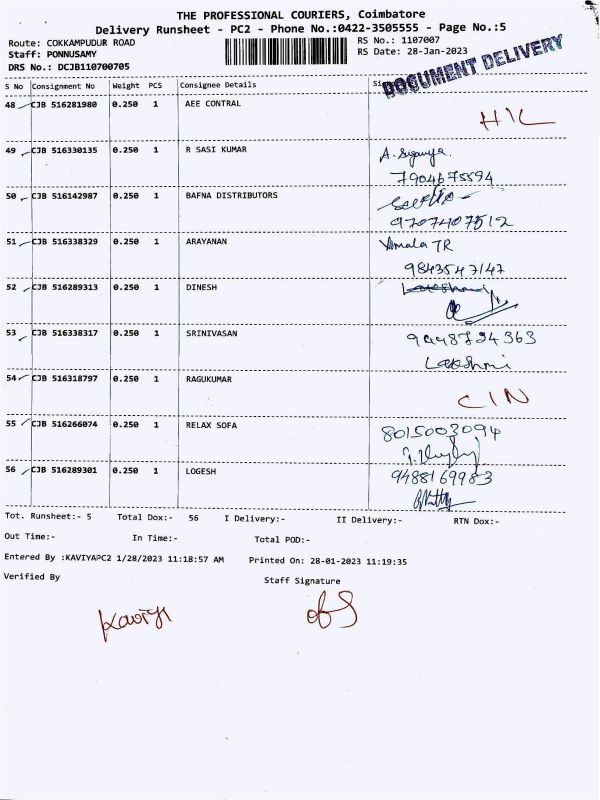 THE PROFESSIONAL COURIERS, Coimbatore
Delivery Runsheet - PC2 - Phone No.:0422-3505555 - Page No.:5
Route: COKKAMPUDUR ROAD
Staff: PONNUSAMY
DRS No.: DCJB110700705
RS No.: 1107007
RS Date: 28-Jan-2023
DOCUMENT DELIVERY
S No Consignment No Weight PCS Consignee Details
48 CJB 516281980 0.250 1 AEE CONTRAL
49 CJB 516330135 0.250 1 R SASI KUMAR
7904675594
50 CJB 516142987 0.250 1 BAFNA DISTRIBUTORS
9707407512
51 CJB 516338329 0.250 1 ARAYANAN
Amala TR
9843547147
52 CJB 516289313 0.250 1 DINESH
53 CJB 516338317 0.250 1 SRINIVASAN
9448724363
Lakshmi
54 CJB 516318797 0.250 1 RAGUKUMAR
CIN
55 CJB 516266074 0.250 1 RELAX SOFA
8015003094
56 CJB 516289301 0.250 1 LOGESH
9488169983
Tot. Runsheet:- 5 Total Dox:- 56 I Delivery:- II Delivery:- RTN Dox:-
Out Time:- In Time:- Total POD:-
Entered By :KAVIYAPC2 1/28/2023 11:18:57 AM Printed On: 28-01-2023 11:19:35
Verified By Staff Signature